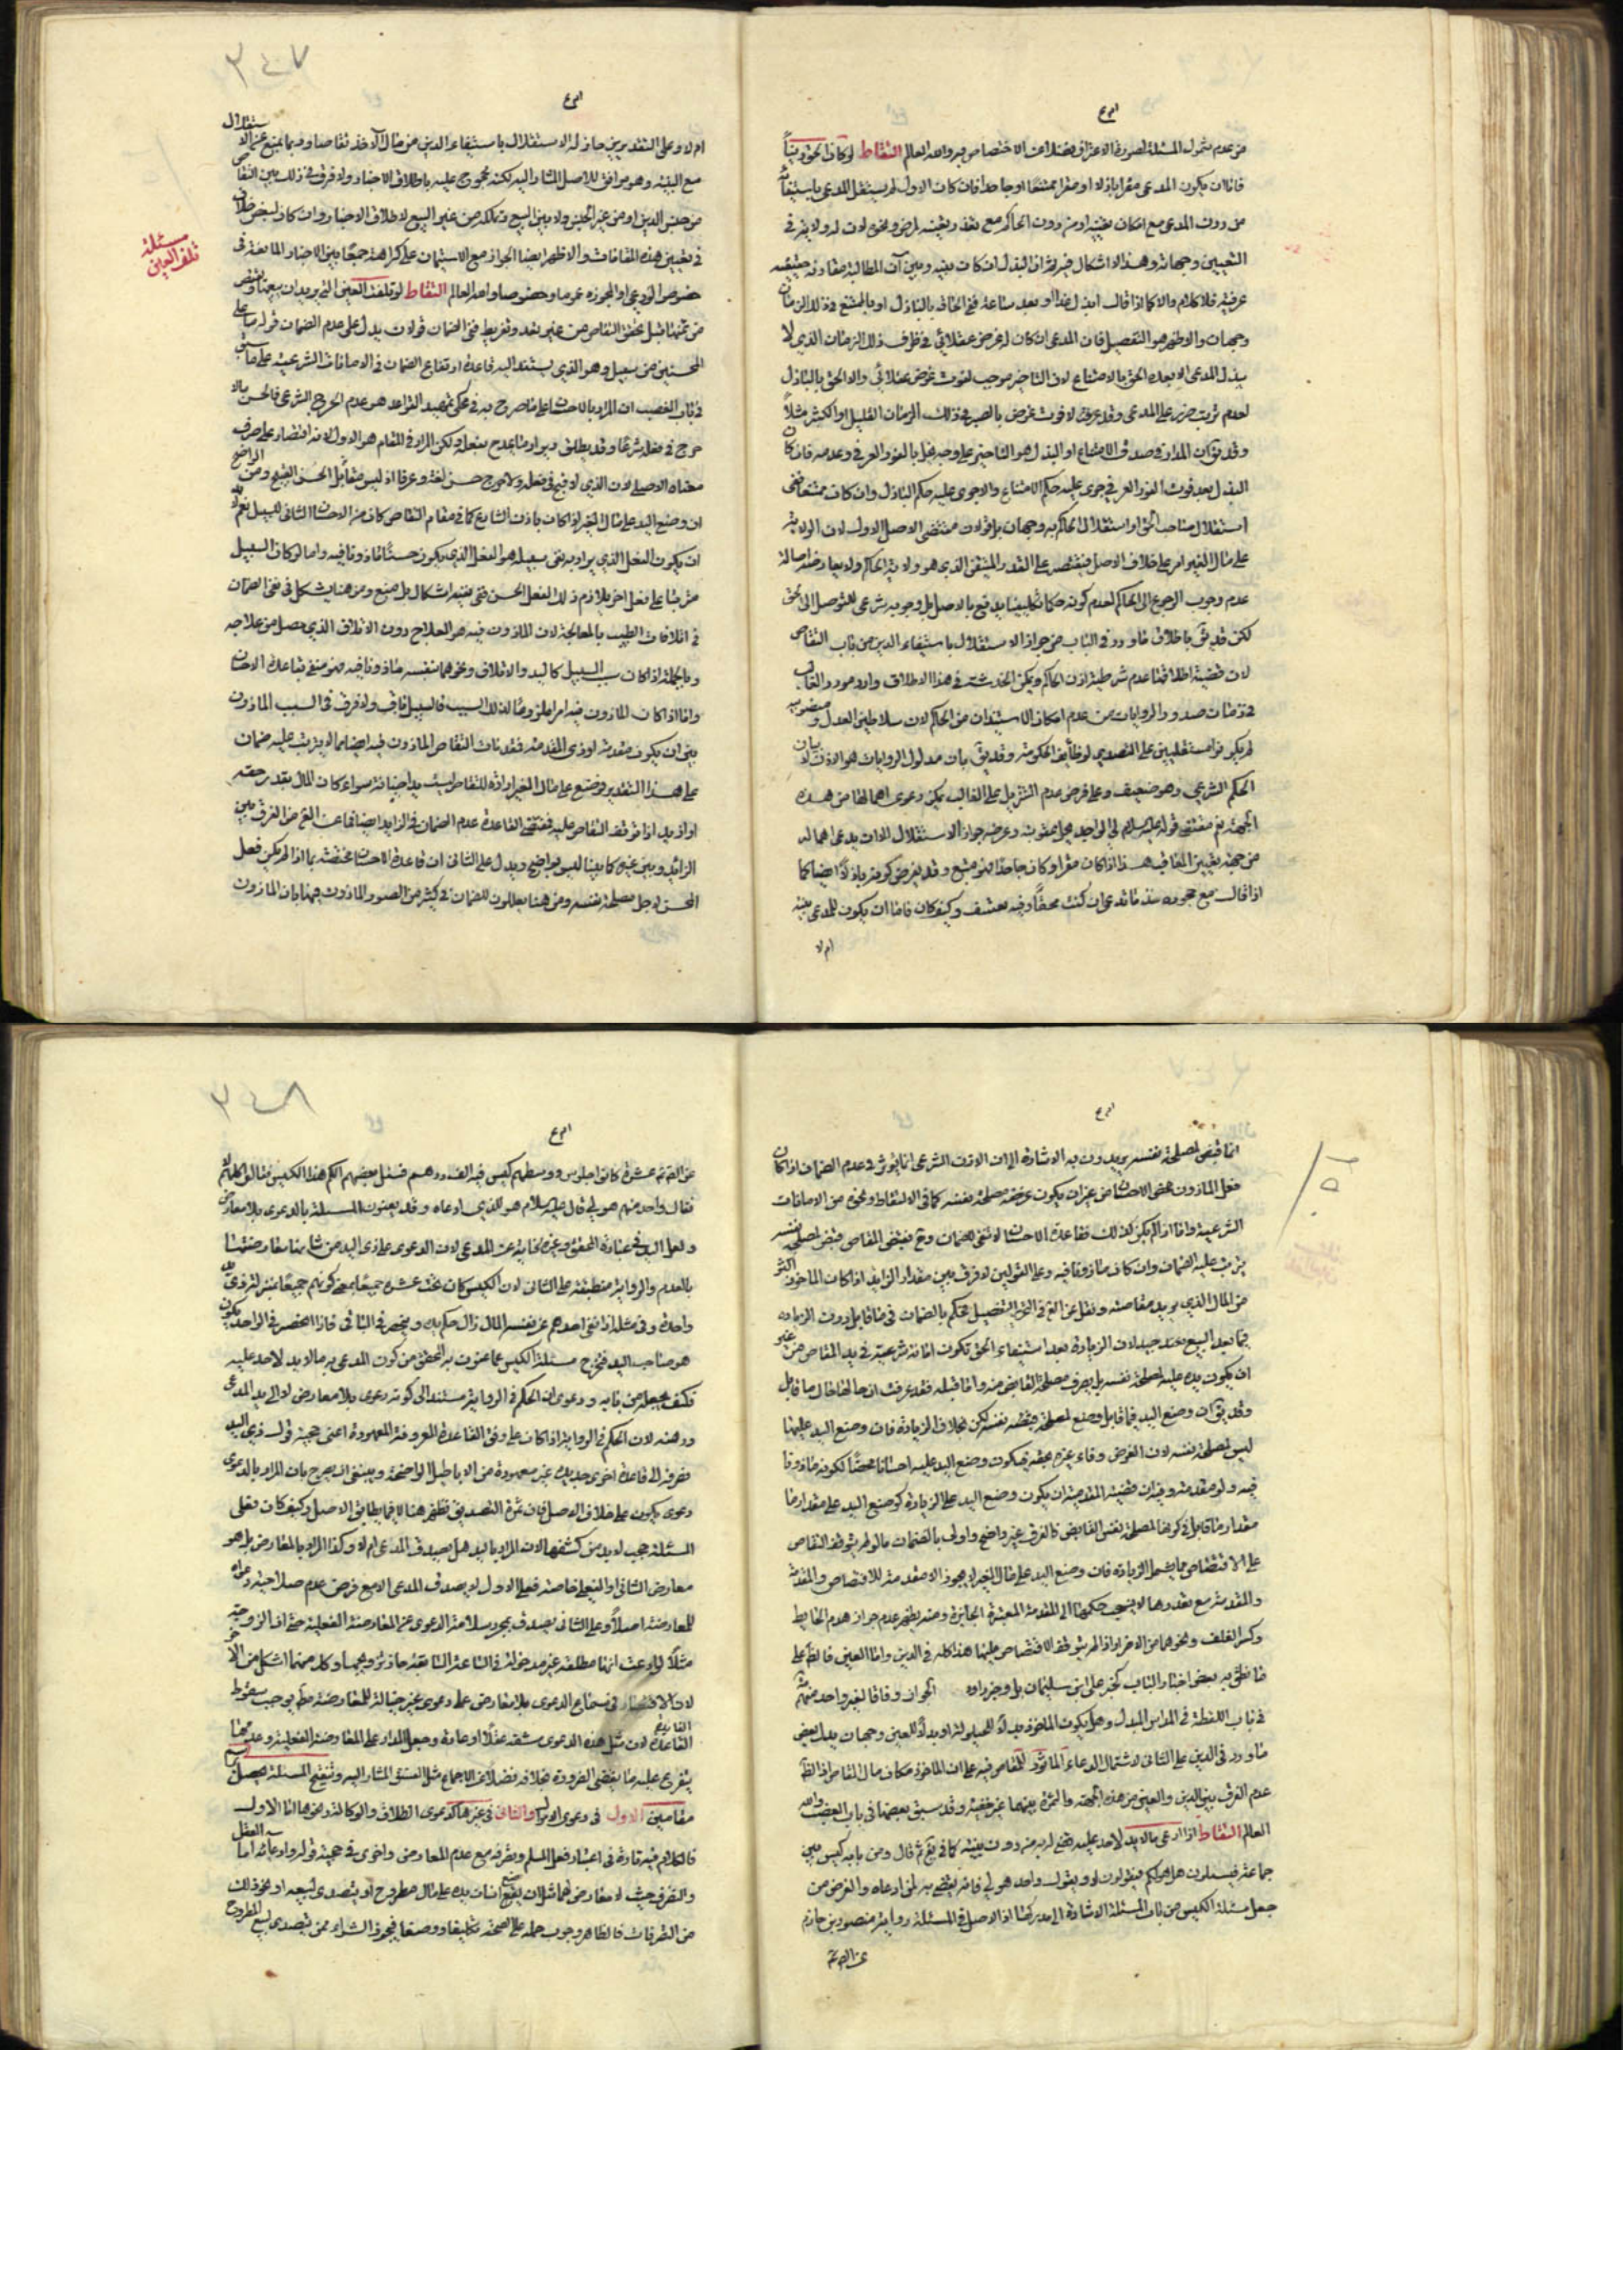 من عدم شمول المسئلة لصورة الاعتراف فضلا عن الاختصاص فيه والله العالم التقاط لو كان الحق دينا
فاما ان يكون المدعى مقرا باذلا او مقرا ممتنعا او جاحدا فان كان الاول لم يستقل المدعى باستيفائه
من دون المدعى مع امكان تعيينه او من دون الحاكم مع تعذر تعيينه لمرض ونحوه لان له ولاية في
التعيين وجهان وهذا الاشكال فيه
عرفية فلا كلام والا كما اذا قال ابذل غدا او بعد ساعة ففي الحاق بالباذل او بالممتنع في ذلك الزمان
وجهان والاظهر هو التفصيل فان المدعى ان كان له غرض عقلائي في ظرف ذلك الزمان الذي لا
يبذل المدعى الا بعده الحق بالامتناع لان التاخير موجب لفوت غرض عقلائي والا الحق بالباذل
لعدم ترتب ضرر على المدعى وقد عرفت لا فوت غرض بالصبر في ذلك الزمان القليل او الكثير مثلا
وقد يق ان المدار في صدق الامتناع او البذل هو التاخير على وجه يخل بالفور العرفي وعدمه فان كان
البذل بعد فوت الفور العرفي جرى عليه حكم الامتناع والا جرى عليه حكم الباذل وان كان ممتنعا ففي
استقلال صاحب الحق او استقلال الحاكم به وجهان بل قولان مقتضى الاصل الاول لان الولاية
على مال الغير امر على خلاف الاصل فيقتصر على القدر المتيقن الذي هو ولاية الحاكم ولا يعارضه اصالة
عدم وجوب الرجوع الى الحاكم لعدم كونه حكما تكليفيا يدفع بالاصل بل وجوبه شرعي للتوصل الى الحق
لكن قد يق باطلاق ما ورد في الباب من جواز الاستقلال باستيفاء الدين من باب التقاص
لان قضية اطلاقها عدم شرطية اذن الحاكم ويمكن الخدشة في هذا الاطلاق وارد مورد الغالب
في زمان صدور الروايات من عدم امكان الاستيذان من الحاكم لان سلاطين العدل
لم يكونوا مستقلين على التصدي لوظائف الحكومة وقد يق بان مدلول الروايات هو الاذن لا بيان
الحكم الشرعي وهو ضعيف وعلى فرض عدم التنزيل على الغالب يمكن دعوى اهمالها من هذه
الجهة نعم مقتضى قوله عليه السلام لي الواجد يحل عقوبته وعرضه جواز الاستقلال الا ان يدعى اهماله
من جهة تعيين المعاقب هذا اذا كان مقرا وكان جاحدا فهو ممتنع وقد يفرض كونه باذلا ايضا كما
اذا قال مع جحوده خذ ما تدعى ان كنت محقا وفيه تعسف وكيف كان فاما ان يكون للمدعى بينة
ام لا
٣٤٧
ام لا وعلى التقديرين جاز له الاستقلال باستيفاء الدين من مال الاخذ تقاصا وربما يمنع عن الاستقلال
مع البينة وهو موافق للاصل المشار اليه لكنه محجوج عليه باطلاق الاخبار ولا فرق في ذلك بين التقاص
من جنس الدين او من غير الجنس ولا بين البيع وتملكه من غير البيع لاطلاق الاخبار وان كان لبعض خلاف
في تعيين هذه المقامات والاظهر ايضا الجواز مع الاستيمان على كراهة جمعا بين الاخبار المانعة في
خصوص الودعي او المجوزة عموما وخصوصا والله العالم التقاط لو تلفت العين التي يريد ان يبيعها ويقبض
من ثمنها قبل تحقق التقاص من غير تعد وتفريط ففي الضمان قولان يدل على عدم الضمان قوله ما على
المحسنين من سبيل وهو الذي يستفاد اليه قاعدة ارتفاع الضمان في الامانات الشرعية على ما سبق
مسئلة
تلف العين
في باب الغصب ان المراد بالاحسان على ما صرح به في محكي تمهيد القواعد هو عدم الحرج الشرعي فالمحسن بلا
حرج في فعله شرعا وقد يطلق ويراد ما يمدح بفعله ولكن المراد في المقام هو الاول لانه اقتصار على صرف
معناه الاصلي لان الذي لا قبح في فعله ولا حرج حسن لغة وعرفا اذ ليس مقابل الحسن الا القبيح ومن الواضح
ان وضع اليد على مال الغير اذا كان باذن الشارع كما في مقام التقاص كان من الاحسان النافي للسبيل نعم لا بد
ان يكون الفعل الذي يراد به نفي سبيله هو الفعل الذي يكون حسنا ماذونا فيه واما لو كان السبيل
مترتبا على فعل اخر يلازم ذلك الفعل الحسن ففي نفيه اشكال بل منع ومن هنا يشكل في نفي الضمان
في اتلافات الطبيب بالمعالجة لان الماذون فيه هو العلاج دون الاتلاف الذي حصل من علاجه
وبالجملة اذا كان سبب السبيل كاليد والاتلاف ونحوهما بنفسه ماذونا فيه فهو منفي بقاعدة الاحسان
واما اذا كان الماذون فيه امرا ملزوما لذلك السبب فالسبيل ثابت ولا فرق في السبب الماذون
بين ان يكون مقدمة او ذي المقدمة فقد بان التقاص الماذون فيه ايضا مما لا يترتب عليه ضمان
على هذا التقدير فوضع على مال الغير ارادة للتقاص ليست يدا خيانة سواء كان المال بقدر حقه
او ازيد اذا توقف التقاص عليه فمقتضى القاعدة عدم الضمان في الزايد ايضا فما عن الفرق بين
الزايد وبين غيره كما بينا ليس بواضح ويدل على الثاني ان قاعدة الاحسان مختصة بما اذا لم يكن فعل
المحسن لاجل مصلحة نفسه ومن هنا يعللون للضمان في كثير من الصور الماذون فيها بان الماذون
انما قبض لمصلحة نفسه يريدون به الاشارة الى ان الاذن الشرعي انما يؤثر في عدم الضمان اذا كان
فعل الماذون محض الاحسان من غير ان يكون غرضه مصلحة نفسه كما في الالتقاط ونحوه من الامانات
الشرعية واما اذا لم يكن كذلك فقاعدة الاحسان لا تنفي الضمان وح فيقتضي المقاص قبض لمصلحة نفسه
يترتب عليه الضمان وان كان ماذونا فيه وعلى القولين لا فرق بين مقدار الزايد اذا كان الماخوذ اكثر
من المال الذي يريد مقاصته ونقل عن الفرق في التحرير التفصيل يحكم بالضمان في ما قابل دون الزيادة
فيما بعد البيع بعد جيد لان الزيادة بعد استيفاء الحق تكون امانة شرعية في يد المقاص من غير
ان يكون يده عليه لمصلحة نفسه بل بصرف مصلحة القابض منه واما قبله فقد عرفت ان حالها حال ما قابل
وقد يق ان وضع اليد فيما قابل وضع لمصلحة نفسه لكن بخلاف الزيادة فان وضع اليد عليها
ليس لمصلحة نفسه لان الغرض وفاء غيره بحقه فيكون وضع اليد عليه احسانا محضا لكونه ماذونا
فيه ولو مقدمة وفيه ان قضية المقدمية ان يكون وضع اليد على الزيادة كوضع اليد على مقدار ما
مقدار ما قابل في كونها لمصلحة نفس القابض فالفرق غير واضح واولى بالضمان ما لو لم يتوقف التقاص
على الاقتصاص مما يشمل الزيادة فان وضع اليد على مال الغير لا يجوز الا مقدمة للاقتصاص والمقدمة
والمقدمة مع تعددها لا ينسحب حكمها الى المقدمة المعتبرة الجايزة ومنه يظهر عدم جواز هدم الحايط
وكسر القلف ونحوهما من الاضرار اذا لم يتوقف الاقتصاص عليها هذا كله في الدين واما العين فالظ على
ما نطق به بعض اخبار الباب كخبر علي بن سليمان بل وخبر داود الجواز وفاقا لغير واحد منهم
في باب اللقطة في المداس المبدل وهل يكون الماخوذ بدلا للحيلولة او بدلا للعين وجهان يدل بعض
ما ورد في الدين على الثاني لاشتمال الدعاء الماثور للتقاص فيه على ان الماخوذ مكان مال المقاص اذ الظ
عدم الفرق بين الدين والعين من هذه الجهة والثمرة بينهما غير خفية وقد سبق بعضها في باب الغصب والله
العالم التقاط اذا ادعى ما لا يد لاحد عليه قضي له به من دون بينة كما في يع ثم قال ومن بابه كيس بين
جماعة فيسئلون هل هو لكم فيقولون لا ويقول واحد هو لي فانه يقضى به لمن ادعاه والغرض من
جعل مسئلة الكيس من باب المسئلة الاشارة الى مدركها اذ الاصل في المسئلة رواية منصور بن حازم
عن الص ع
٣٤٨
عن الص ع عشرة كانوا جلوس ووسطهم كيس فيه الف درهم فسئل بعضهم الكم هذا الكيس فقالوا كلهم لا
فقال واحد منهم هو لي قال عليه السلام هو للذي ادعاه وقد يعنون المسئلة بالدعوى بلا معارض
ولعل اليد في عبارة المحقق وغيره كناية عن المدعى لان الدعوى على ذي اليد من شانها معارضتها
بالعدم والرواية منطبقة على الثاني لان الكيس كان تحت عشرة جميعا بمعنى كونهم جميعا بمنزلة ذي يد
واحدة وفي مثله اذا نفى احدهم عن نفسه المال زال حكم يده وينحصر في الباقي فاذا انحصر في الواحد يكون
هو صاحب اليد فتخرج مسئلة الكيس عما عنون به المحقق من كون المدعى به مما لا يد لاحد عليه
فكيف يجعل من بابه ودعوى ان الحكم في الرواية مستند الى كونه دعوى بلا معارض لا الى يد المدعى
وهنه لان الحكم في الرواية اذا كان على وفق القاعدة المعروفة المعهودة اعني حجية قول ذي اليد
فصرفه الى قاعدة اخرى جديدة غير معهودة من الاباطيل الواضحة وينبغي ان يصرح بان المراد بالدعوى
دعوى يكون على خلاف الاصل فان ثمرة التصديق تظهر هنا لا فيما يطابق الاصل وكيف كان ففي
المسئلة عجيب لا بد من كشفها لان المراد باليد هل يصدق المدعى ام لا وكذا المراد بالمعارض بل هو
معارض الثاني او الفعلي خاصة فعلى الاول لا يصدق المدعى الا مع فرض عدم صلاحية دعواه
للمعارضة اصلا وعلى الثاني يصدق بمجرد سلامة الدعوى عن المعارضة الفعلية حتى ان الزوجة
مثلا لو ادعت انها مطلقة غير مدخولة في الساعة السابقة جاز تزويجها وكل منهما اشكل من الاخر
لان الاقتصار في سماع الدعوى بلا معارض على دعوى غير قابلة للمعارضة مط يوجب سقوط
القاعدة لان مثل هذه الدعوى مشقة عقلا او عادة وجعل المدار على المعارضة الفعلية وعدمها
يتفرع عليه ما يقضي الضرورة بخلافه فضلا عن الاجماع مثل الفسق المشار اليه وتنقيح المسئلة يحصل برسم
مقامين الاول في دعوى الاموال والثاني في غيرها كدعوى الطلاق والوكالة ونحوها اما الاول
فالكلام فيه تارة في اعتبار فعل المسلم وتصرفه مع عدم المعارض واخرى في حجية قوله وادعائه اما الفعل
والتصرف حيث لا معارض لهما مثل ان يضع انسان يده على مال مطروح او يتصدى لبيعه او نحو ذلك
من التصرفات فالظاهر وجوب حمله على الصحة تكليفا ووضعا فيجوز الشراء ممن يتصدى لبيع المطروح